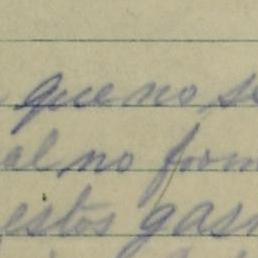 que no se
al no form
estos gas